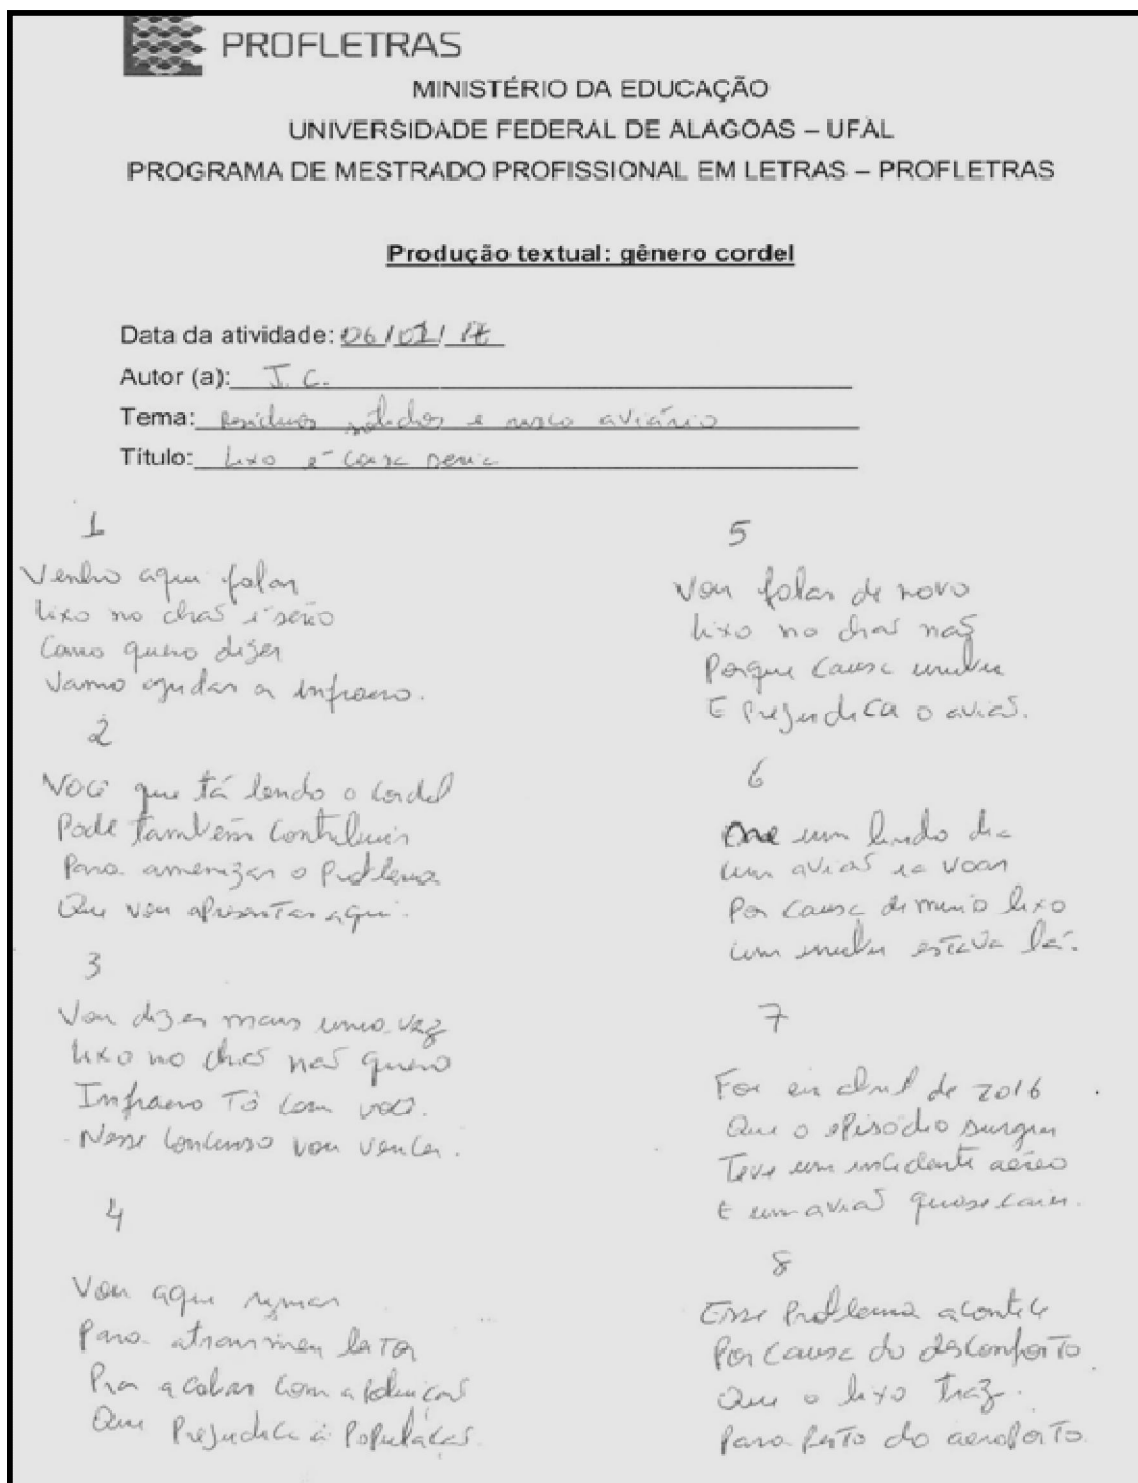 PROFLETRAS
MINISTÉRIO DA EDUCAÇÃO
UNIVERSIDADE FEDERAL DE ALAGOAS – UFAL
PROGRAMA DE MESTRADO PROFISSIONAL EM LETRAS – PROFLETRAS
Produção textual: gênero cordel
Data da atividade: 06/02/17
Autor (a): J. C.
Tema: Resíduos sólidos e risco aviário
Título: Lixo é coisa séria
1
Venho aqui falar
lixo no chão é sério
Como quero dizer
Vamo ajudar a infraero.
2
Você que tá lendo o cordel
Pode também contribuir
Para amenizar o Problema
Que vou apresentar aqui.
3
Vou dizer mais uma vez
lixo no chão não quero
Infraero Tô com você.
Nesse concurso vou vencer.
4
Vou aqui rimar
Para atrair meu leitor
Pra acabar com a poluição
Que Prejudica a População.
5
Vou falar de novo
lixo no chão não
Porque causa urubu
E Prejudica o avião.
6
Era um lindo dia
um avião ia voar
Por causa de muito lixo
um urubu estava lá.
7
Foi em abril de 2016
Que o episódio surgiu
Teve um incidente aéreo
E um avião quase caiu.
8
Esse Problema acontece
Por causa do desconforto
Que o lixo traz.
Para perto do aeroporto.